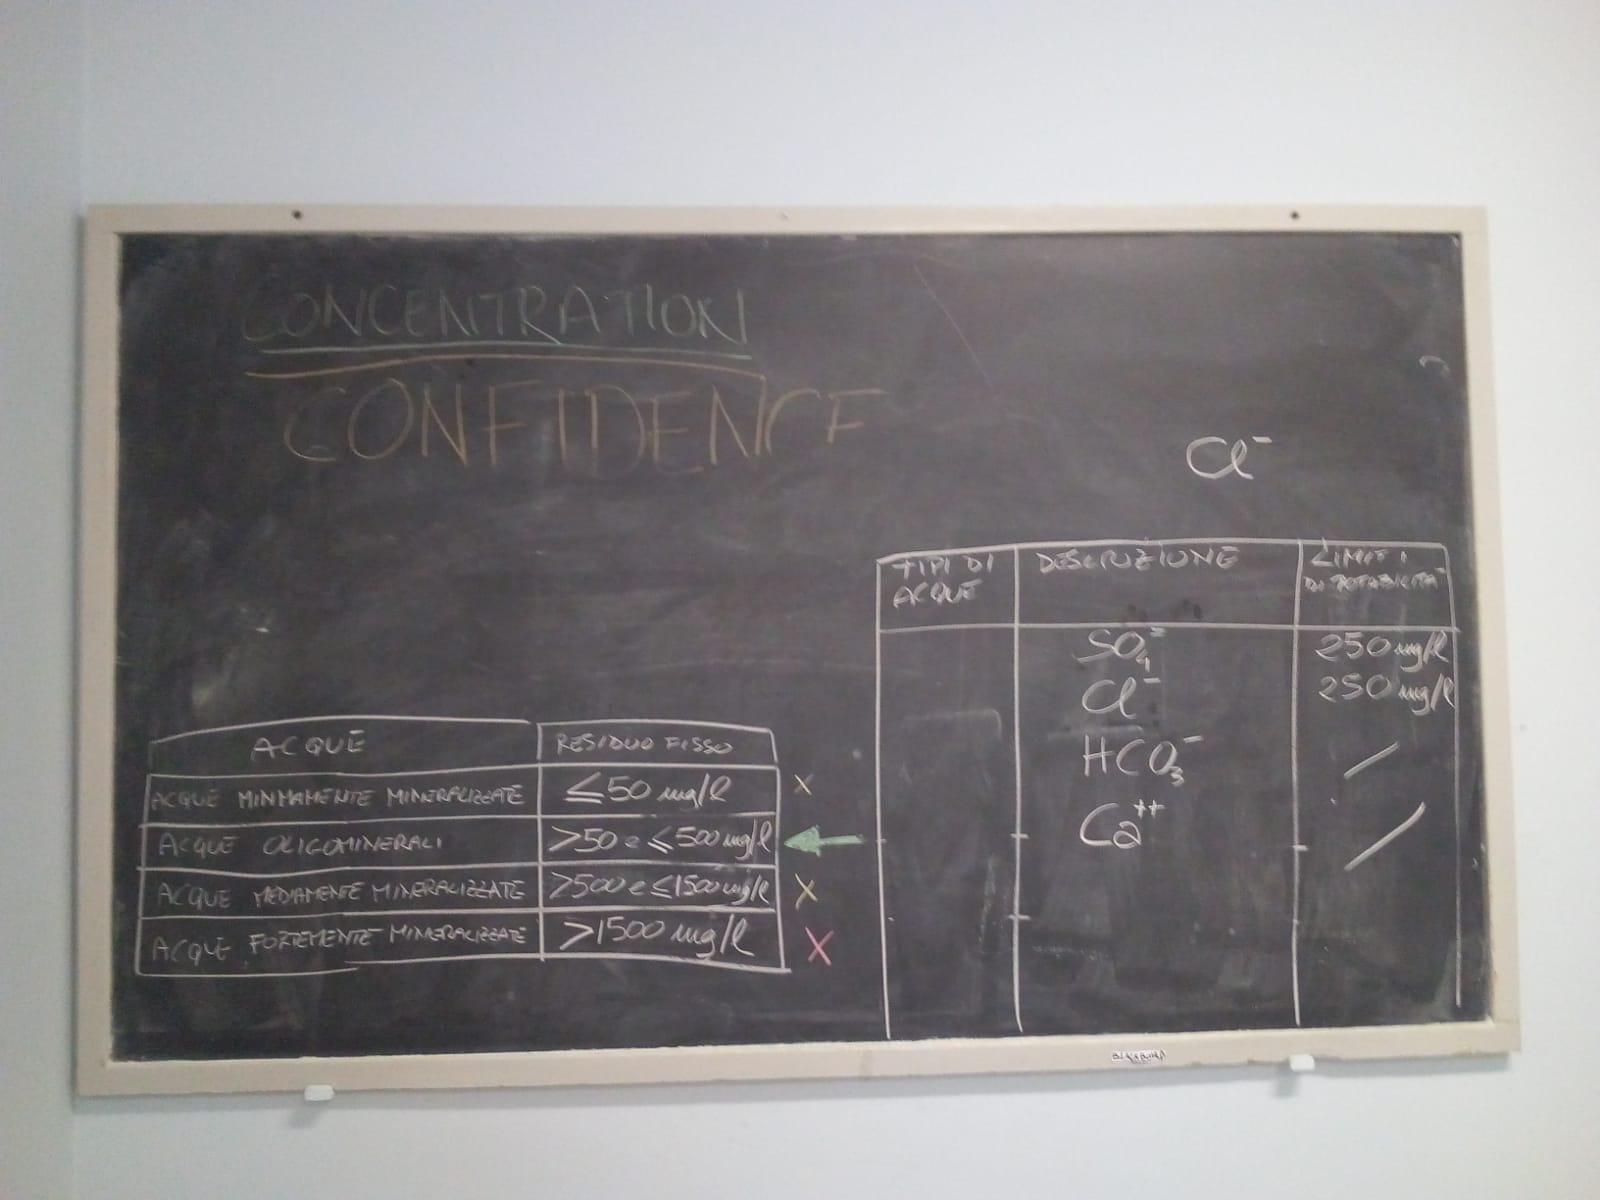 CONCENTRATION
CONFIDENCE
Cl⁻
TIPI DI ACQUE | DESCRIZIONE | LIMITI DI POTABILITÀ
SO₄⁼ | 250 mg/l
Cl⁻ | 250 mg/l
HCO₃⁻ | /
Ca⁺⁺ | /
ACQUE | RESIDUO FISSO
ACQUE MINIMAMENTE MINERALIZZATE | ≤50 mg/l X
ACQUE OLIGOMINERALI | >50 e ≤500 mg/l ←
ACQUE MEDIAMENTE MINERALIZZATE | >500 e ≤1500 mg/l X
ACQUE FORTEMENTE MINERALIZZATE | >1500 mg/l X